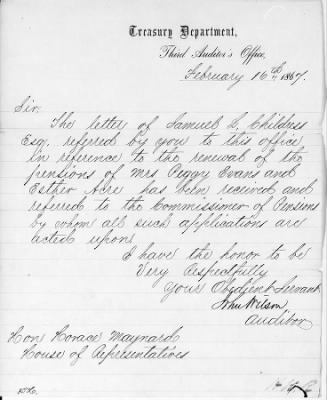 Treasury Department,
Third Auditor's Office,
February 16th 1867.
Sir.
The letter of Samuel L. Childress
Esq. referred by you to this office
in reference to the renewal of the
pensions of Mrs. Peggy Evans and
Esther Acre has been received and
referred to the Commissioner of Pensions
by whom all such applications are
acted upon.
I have the honor to be
Very Respectfully
Your Obedient Servant
John Wilson
Auditor
Hon Horace Maynard
House of Representatives